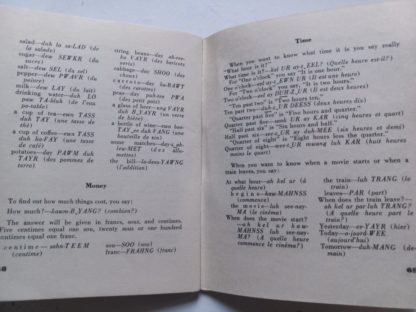 salad—duh la sa-LAD (de
la salade)
sugar—dew SEWKR (du
sucre)
salt—dew SEL (du sel)
pepper—dew PWAVR (du
poivre)
milk—dew LAY (du lait)
drinking water—duh LO
paw TA-bluh (de l'eau
potable)
a cup of tea—ewn TASS
duh TAY (une tasse de
thé)
a cup of coffee—ewn TASS
duh ka-FAY (une tasse de
café)
potatoes—day PAWM duh
TAYR (des pommes de
terre)
string beans—day ah-ree-
ko VAYR (des haricots
verts)
cabbage—day SHOO (des
choux)
carrots—day ka-RAWT
(des carottes)
peas—day puh-tee PWA
(des petits pois)
a glass of beer—ung VAYR
duh B_YAYR (un verre
de bière)
a bottle of wine—ewn boo-
TAY_yuh duh VANG (une
bouteille de vin)
some matches—day
the bill—la-deess-YAWNG
(l'addition)
Money
To find out how much things cost, you say:
How much?—kawm-B_YANG? (combien?)
The answer will be given in francs, sous, and centimes.
Five centimes equal one sou, twenty sous or one hundred
centimes equal one franc.
centime—sahn-TEEM
(centime)
sou—SOO (sou)
franc—FRAHNG (franc)
Time
When you want to know what time it is you say really
"What hour is it?"
What time is it?—kel UR ay-t_EEL? (Quelle heure est-il?)
For "One o'clock" you say "It is one hour."
One o'clock—eel ay t_EWN UR (Il est une heure)
For "Two o'clock" you say "It is two hours."
Two o'clock—eel ay DUH-Z_UR (Il est deux heures)
"Ten past two" is "Two hours ten."
Ten past two—duh-z_UR DEESS (deux heures dix)
"Quarter past five" is "Five hours and quarter."
Quarter past five—sank UR ay KAR (cinq heures et quart)
"Half past six" is "Six hours and half."
Half past six—seez_UR ay duh-MEE (six heures et demi)
"Quarter of eight" is "Eight hours less the quarter."
Quarter of eight—weet_UR mwang luh KAR (huit heures
moins le quart)
When you want to know when a movie starts or when a
train leaves, you say:
At what hour—ah kel ur (à
quelle heure)
begins—kaw-MAHNSS
(commence)
the movie—luh see-nay-
MA (le cinéma)
When does the movie start?
—ah kel ur kaw-
MAHNSS luh see-nay-
MA? (A quelle heure
commence le cinéma?)
the train—luh TRANG (le
train)
leaves—PAR (part)
When does the train leave?—
ah kel ur par luh TRANG?
(A quelle heure part le
train?)
Yesterday—ee-YAYR (hier)
Today—o-joord-WEE
(aujourd'hui)
Tomorrow—duh-MANG (de-
main)